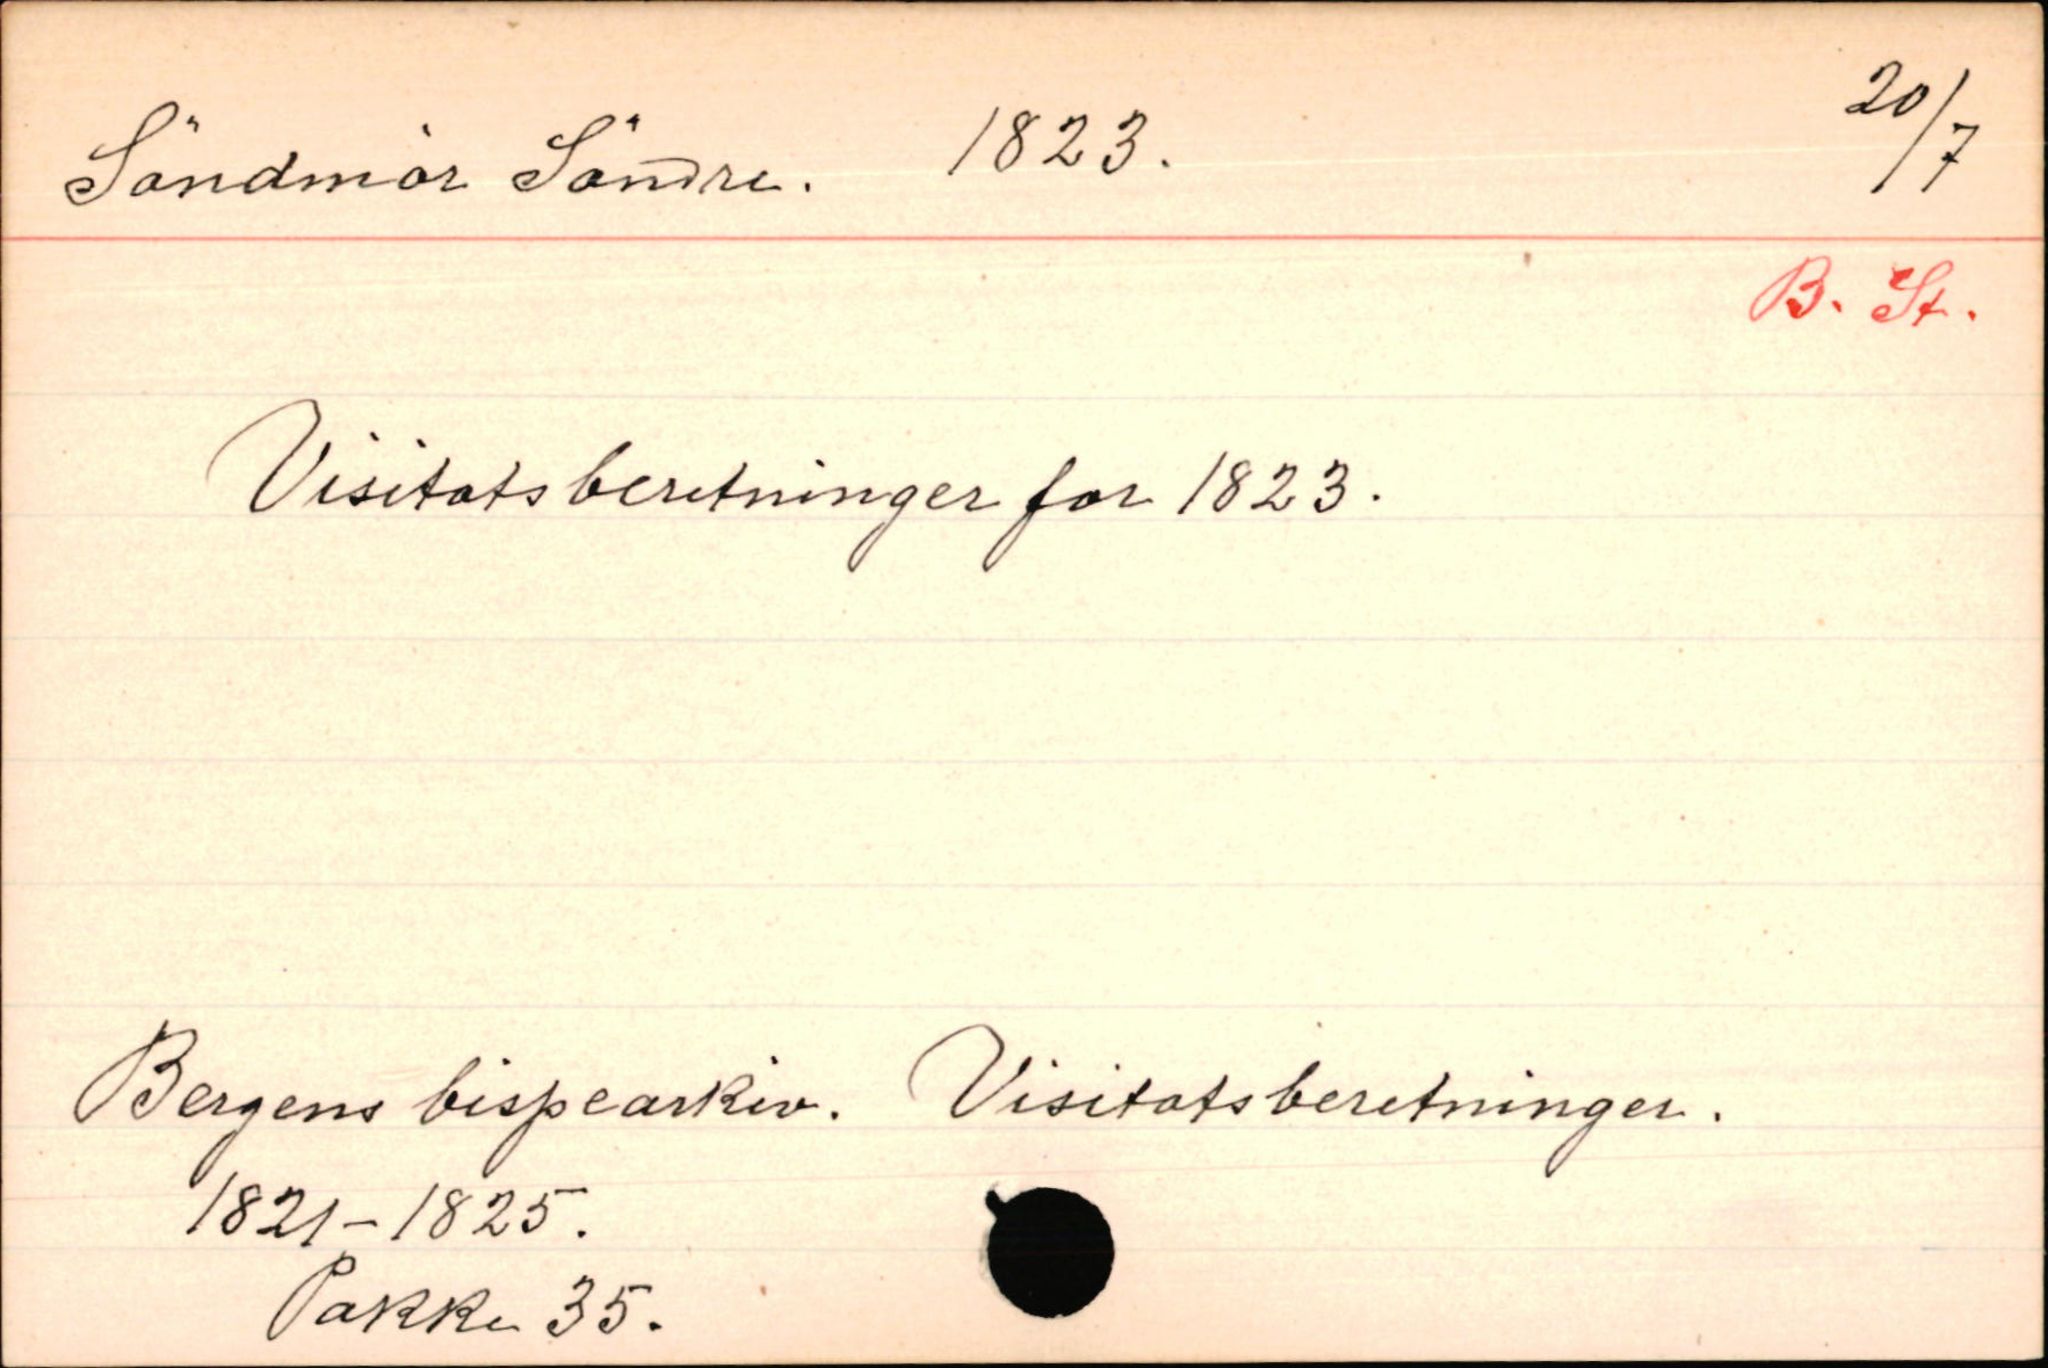 Söndmör Söndre. 1823. 20/7
B. St.
Visitatsberetninger for 1823.
Bergens bispearkiv. Visitatsberetninger.
1821-1825.
Pakke 35.